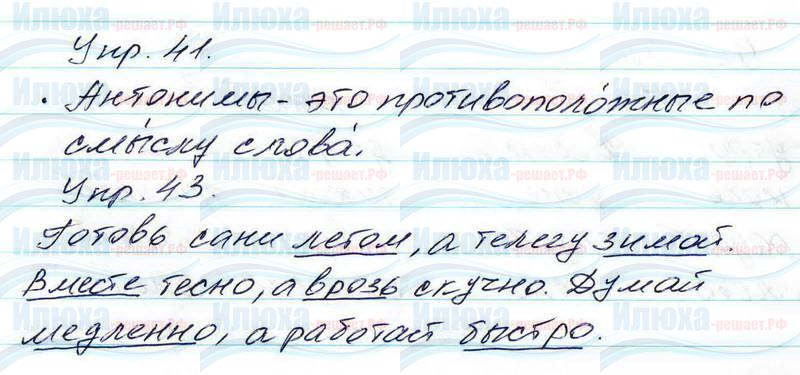 Упр. 41.
· Антонимы - это противополо́жные по
смы́слу слова́.
Упр. 43.
Готовь сани летом, а телегу зимой.
Вместе тесно, а врозь скучно. Думай
медленно, а работай быстро.